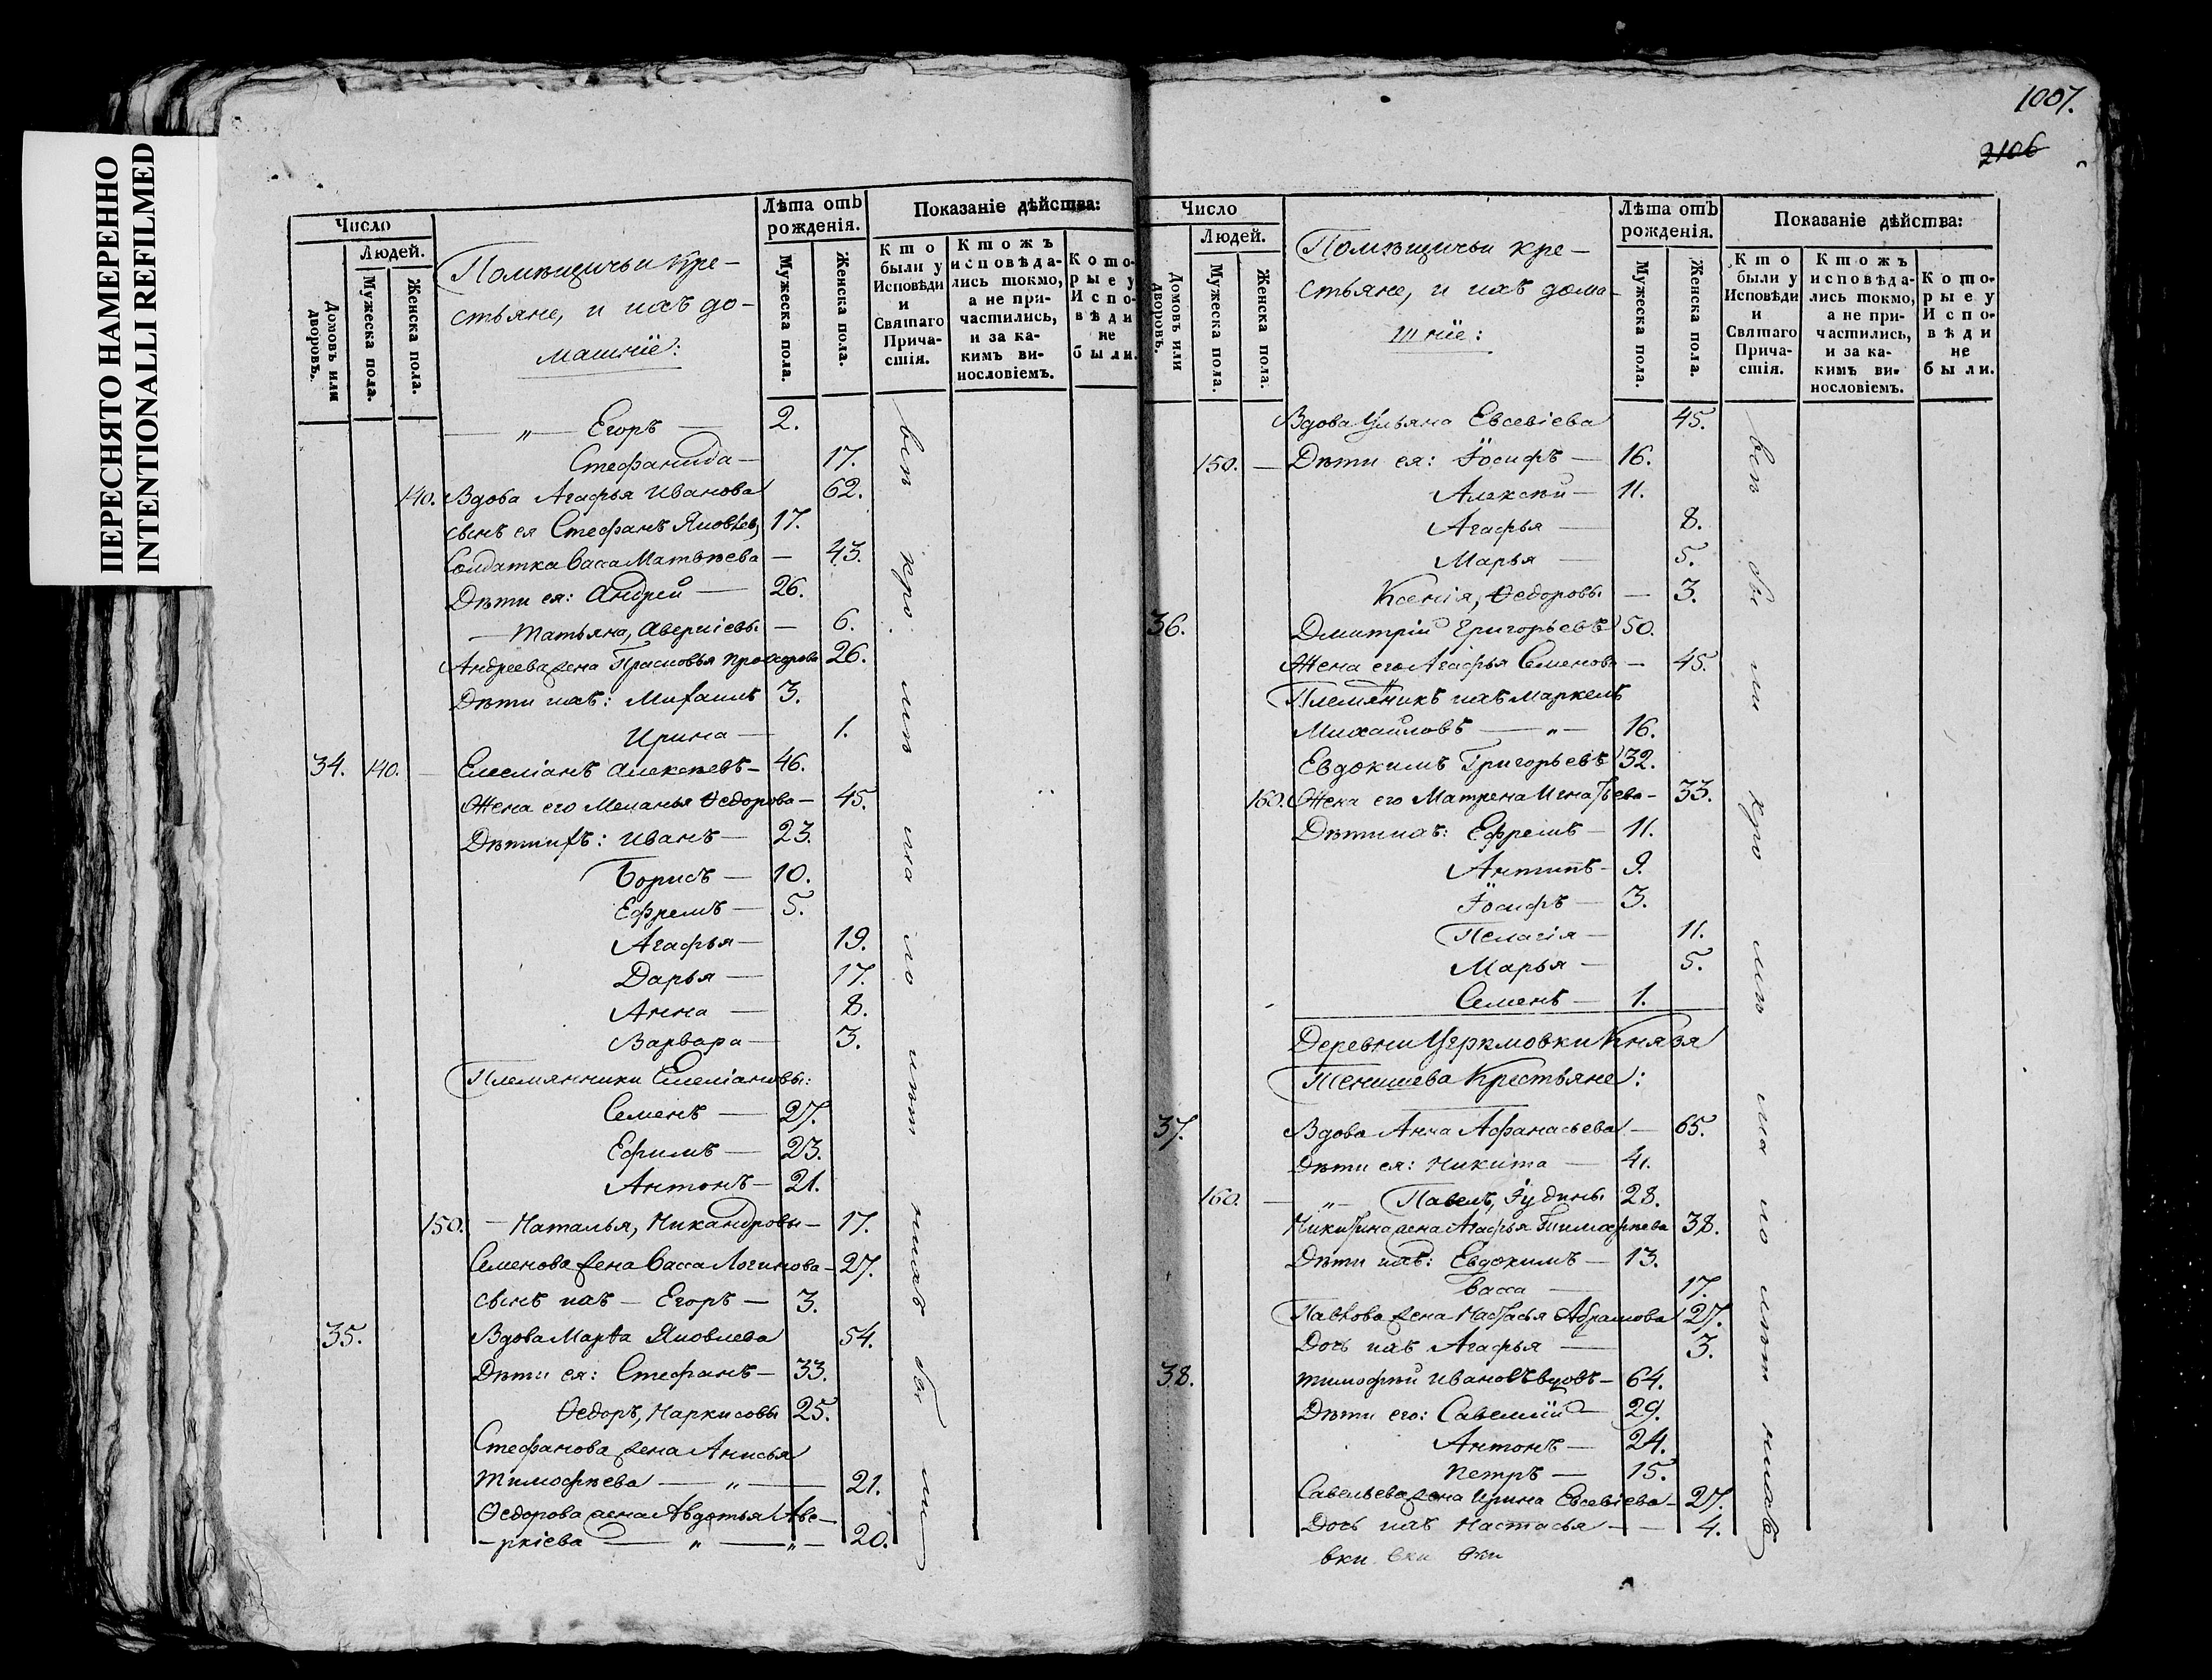 ПЕРЕСНЯТО НАМЕРЕННО
INTENTIONALLI REFILMED
Число
Людей.
Домовъ или дворовъ.
Мужеска пола.
Женска пола.
Помѣщичьи кре-
стьяне, и ихъ до-
машнїе:
Лѣта отъ рожденія.
Мужеска пола.
Женска пола.
Показаніе дѣйства:
Кто были у Исповѣди и Святаго Причастія.
Ктожъ исповѣдались токмо, а не причастились, и за какимъ винословіемъ.
Которые у Исповѣди не были.
— „ — Егоръ — 2.
Стефанида — 17.
140. Вдова Агафья Иванова 62.
сынъ ея Стефанъ Яковлев 17.
Солдатка Васса Матвѣева — 43.
Дѣти ея: Андрей — 26.
— Татьяна, Аверкіевы — 6.
Андреева жена Прасковья 26.
Дѣти ихъ: Михаилъ 3.
Ирина — 1.
34. 140. — Емеліанъ Алексѣевъ — 46.
Жена его Меланья Ѳедорова — 45.
Дѣти ихъ: Иванъ — 23.
Борисъ — 10.
Ефремъ — 5.
Агафья — 19.
Дарья — 17.
Анна — 8.
Варвара — 3.
Племянники Емеліановы:
Семенъ — 27.
Ефимъ — 23.
Антонъ — 21.
150. — Наталья, Никандровы — 17.
Семенова жена Васса Логинова — 27.
сынъ ихъ — Егоръ — 3.
35. Вдова Марѳа Яковлева 54.
Дѣти ея: Стефанъ — 33.
Ѳедоръ, Наркисовы 25.
Стефанова жена Анисья
Тимофѣева — „ — 21.
Ѳедорова жена Авдотья Аве-
-ркіева — „ — „ — 20.
всѣ кро мѣ ма ло лѣт нихъ бы ли
1007.
2106
Число
Людей.
Домовъ или дворовъ.
Мужеска пола.
Женска пола.
Помѣщичьи кре-
стьяне, и ихъ дома-
шнїе:
Лѣта отъ рожденія.
Мужеска пола.
Женска пола.
Показаніе дѣйства:
Кто были у Исповѣди и Святаго Причастія.
Ктожъ исповѣдались токмо, а не причастились, и за какимъ винословіемъ.
Которые у Исповѣди не были.
Вдова Ульяна Евсевіева 45.
150. — Дѣти ея: Іосифъ — 16.
Алексѣй — 11.
Агафья — 8.
Марья — 5.
Ксенія, Ѳедоровы — 3.
36. Дмитрій Григорьевъ 50.
Жена его Агафья Семенова — 45.
Племянникъ ихъ Маркелъ
Михайловъ — „ — 16.
Евдокимъ Григорьевъ 32.
160. Жена его Матрена Игнатьева — 33.
Дѣти ихъ: Ефремъ — 11.
Антипъ — 9.
Іосифъ — 3.
Пелагія — 11.
Марья — 5.
Семенъ — 1.
Деревни Князя
Тенишева Крестьяне:
37. Вдова Анна Афанасьева — 65.
Дѣти ея: Никита — 41.
160. — „ — Павелъ, Іудины 28.
Никитина жена Агафья Тимофѣева 38.
Дѣти ихъ: Евдокимъ — 13.
Васса — 17.
Павлова жена Настасья Абрамова 27.
Дочь ихъ Агафья — 3.
38. Тимофѣй Ивановъ вдовъ — 64.
Дѣти его: Савелїй — 29.
Антонъ — 24.
Петръ — 15.
Савельева жена Ирина Евсевіева — 27.
Дочь ихъ Настасья — 4.
вки вки вки
всѣ бы ли кро мѣ ма ло лѣт нихъ